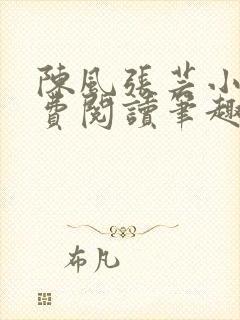 陳風張芸小
費閱讀筆趣
布凡